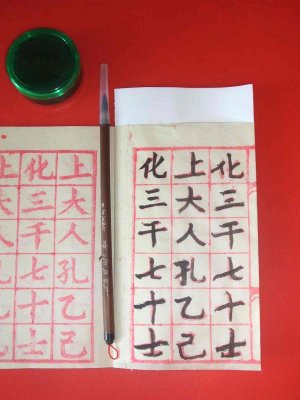 化三千七十士
上大人孔乙己
化三千七十士
上大人孔乙己
化三千七十士
上大人孔乙己